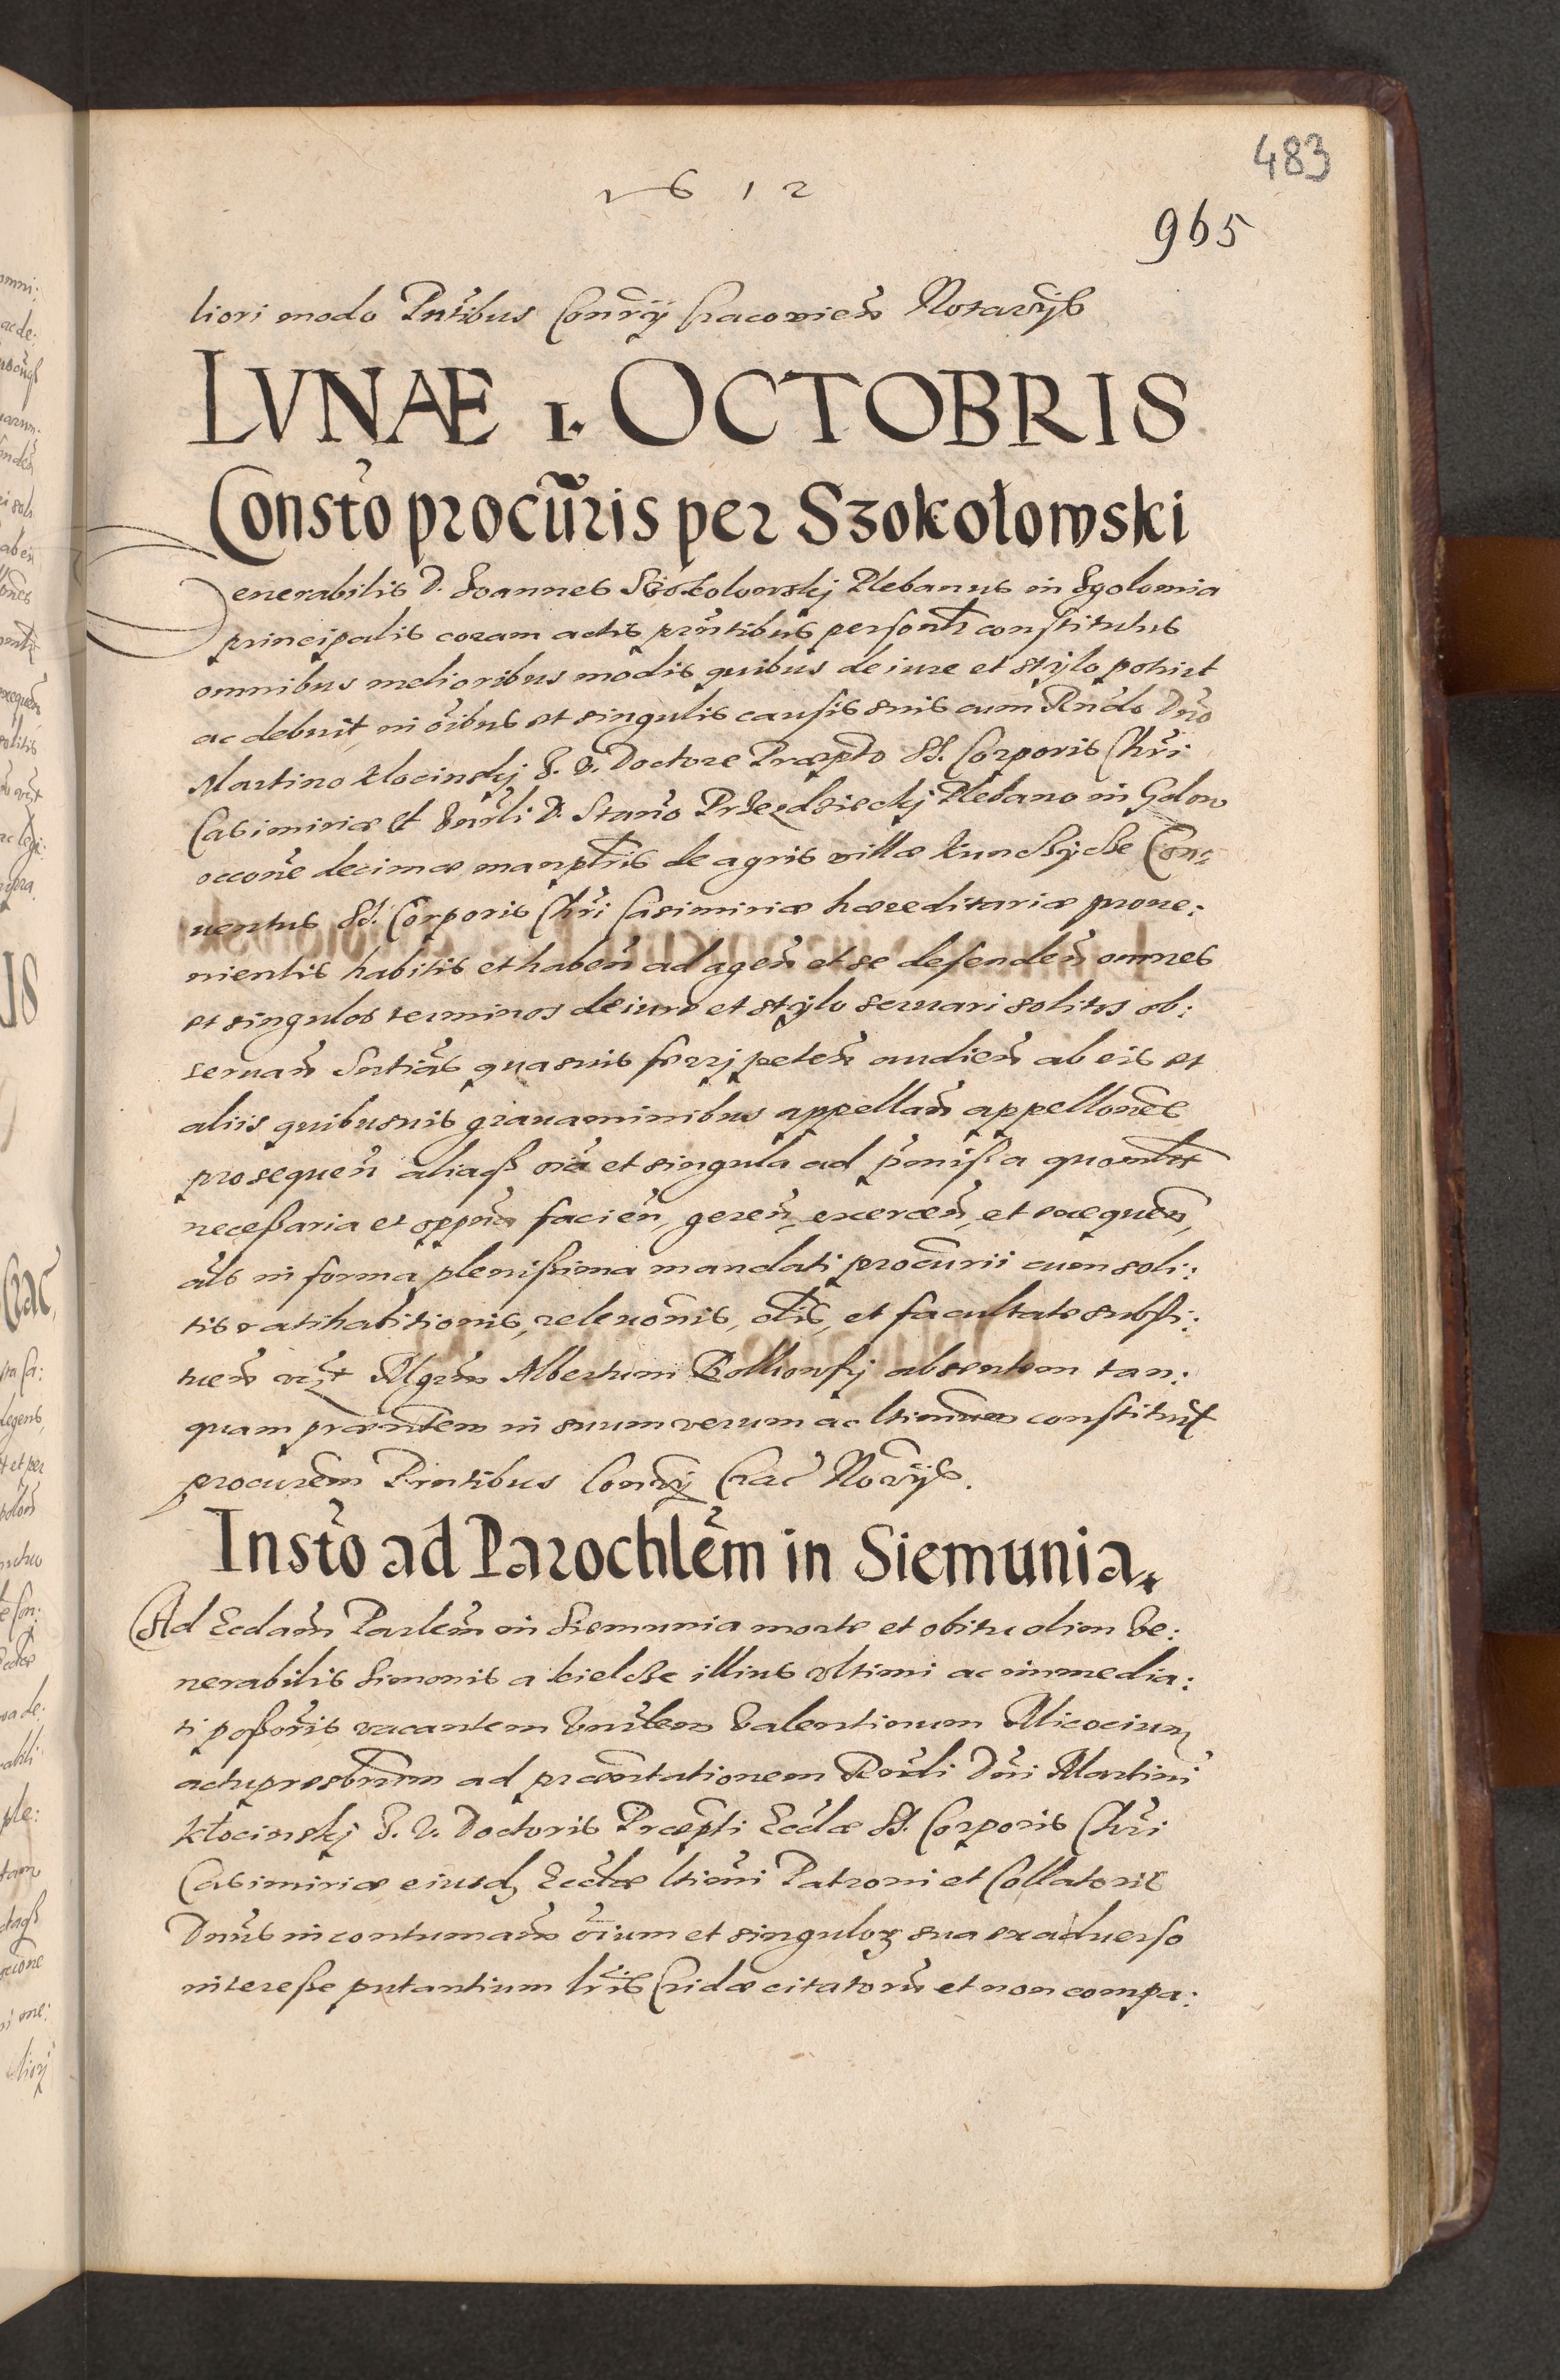 483
1612
965
liori modo Pntibus Conrij Cracovien Notarijs
LVNAE 1. OCTOBRIS
Consto procuris per Szokołowski
Venerabilis D. Joannes Szokolowskj Plebanus in Igolomia
principalis coram actis pntibus personlr constitutus
omnibus melioribus modis quibus de iure et stylo potuit
ac debuit, in oibus et singulis causis suis cum Rndo Dno
Martino Klocinskj I. V. Doctore Præpto SS. Corporis Chri
Casimiriæ et Vnrli D. Stano Przezdzieckj Plebano in
occone decimæ manplris de agris villæ Con:
uentus SS. Corporis Chri Casimiriæ hæreditariæ proue:
nientis habitis et haben ad agen et se defenden omnes
et singulos terminos de iure et stylo seruari solitos ob:
seruan Sntias quasuis ferrj peten audien ab eis et
aliis quibusuis grauaminibus appellan appellones
prosequen aliaqß oia et singula ad pmißa quomlt
neceßaria et oppna facien, geren, exercen, et exequen,
als in forma plenißima mandati procurii cum soli:
tis ratihabitionis, releuonis, olis, et facultate substi:
tuen vnt Mgrm Albertum absentem tan:
quam præntem in suum verum ac ltimum constituit
procurem Pntibus Conrij Crac Norijs.
Insto ad Parochlem in Siemunia.
Ad Ecclam Parlem in Siemunia morte et obitu olim Ve:
nerabilis Simonis a Kielcze illius vltimi ac immedia:
ti poßoris vacantem Vnrlem Valentinum Micocium
actu presbrum ad præntationem Rndi Dni Martini
Kłocinskj I. V. Doctoris Præpti Ecclæ SS. Corporis Chri
Casimiriæ eiusdz Ecclæ ltimi Patroni et Collatoris
Dnus in contumam oium et singuloz sua ex aduerso
intereße putantium lris Cridæ citatoru et non compa: